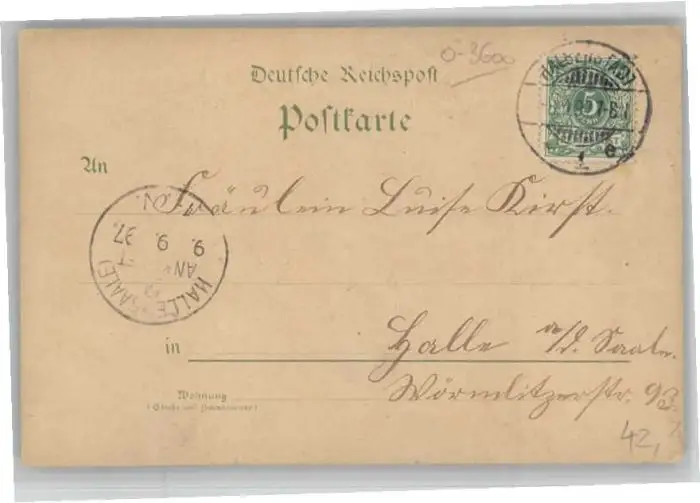 0-3600
Deutsche Reichspost
Postkarte
HALBERSTADT
5
1 e
An
Fräulein Luise Kirst.
9. 9. 97.
HALLE (SAALE)
in Halle a/d. Saale.
Wörmlitzerstr. 93
Wohnung
(Straße und Hausnummer)
42,